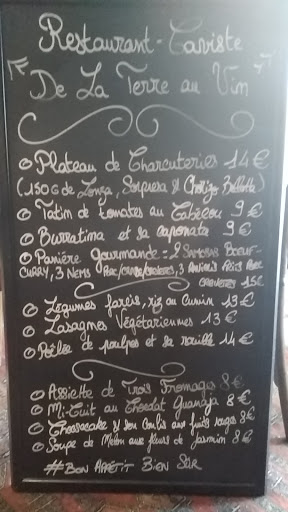 Restaurant-Caviste
"De La Terre au Vin"
Plateau de Charcuteries 14€
(150G de Lonza, & Chorizo Bellota)
Tatin de tomates au 9€
Burratina et sa caponata 9€
Panière gourmande = 2 Samosas Boeuf-
Curry, 3 Nems 3
15€
Légumes farcis, riz au Cumin 13€
Lasagnes Végétariennes 13€
Poêlée de poulpes et sa rouille 14€
Assiette de Trois Fromages 8€
Mi-Cuit au Chocolat Guanaja 8€
Cheesecake & son Coulis aux fruits rouges 8€
Soupe de Melon aux fleurs de Jasmin 8€
#Bon Appétit Bien Sûr